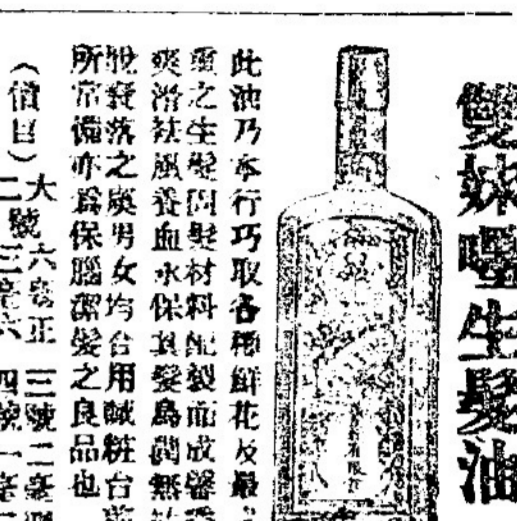 雙妹嘜生髮油
此油乃本行巧取各種鮮花及最
重之生髮固髮材料配製而成馨
爽滑祛風養血永保其髮烏潤無
脫衰落之虞男女均合用誠粧台
所常備亦為保腦潔髮之良品也
(價目)
大號六毫正 三號二毫
二號三毫六 四號一毫